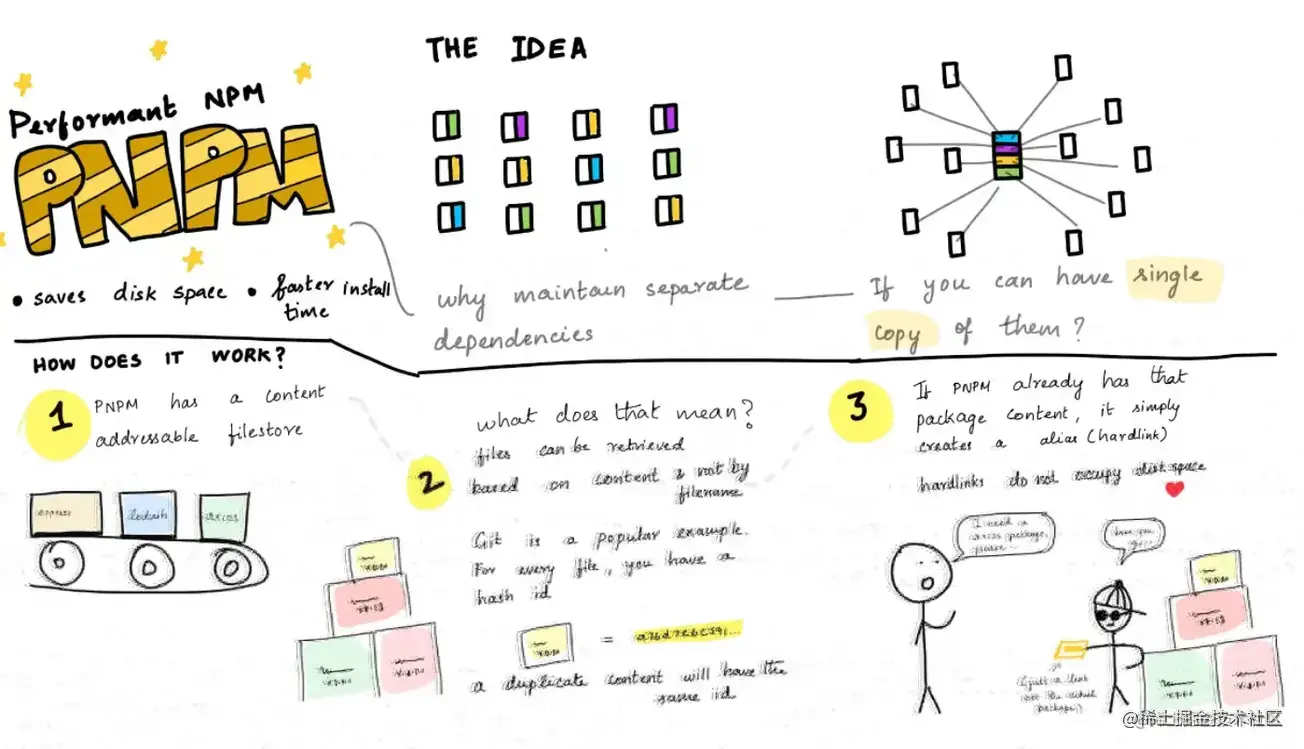 Performant NPM
PNPM
• saves disk space • faster install
time
THE IDEA
why maintain separate
dependencies
If you can have single
copy of them?
HOW DOES IT WORK?
1
PNPM has a content
addressable filestore
express
lodash
axios
2
what does that mean?
files can be retrieved
based on content & not by
filename
Git is a popular example.
For every file, you have a
hash id
=
a duplicate content will have the
same id
3
If PNPM already has that
package content, it simply
creates a alias (hardlink)
hardlinks do not occupy disk space
I need a
axios package,
please
Here you
go
(just a link
not the actual
package)
@稀土掘金技术社区